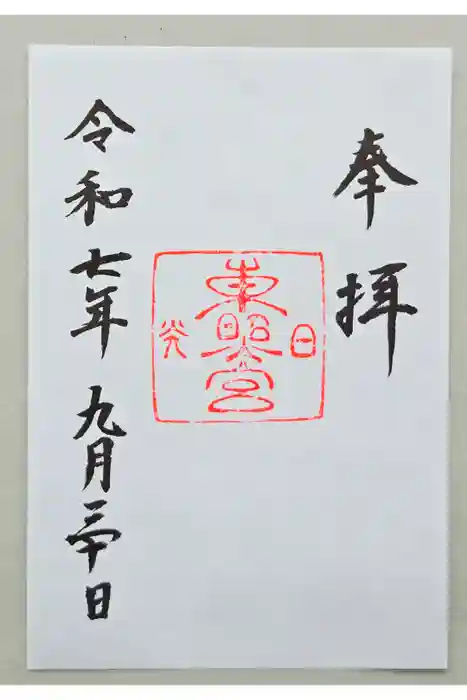 奉拝
日
東照宮
光
令和七年九月三十日